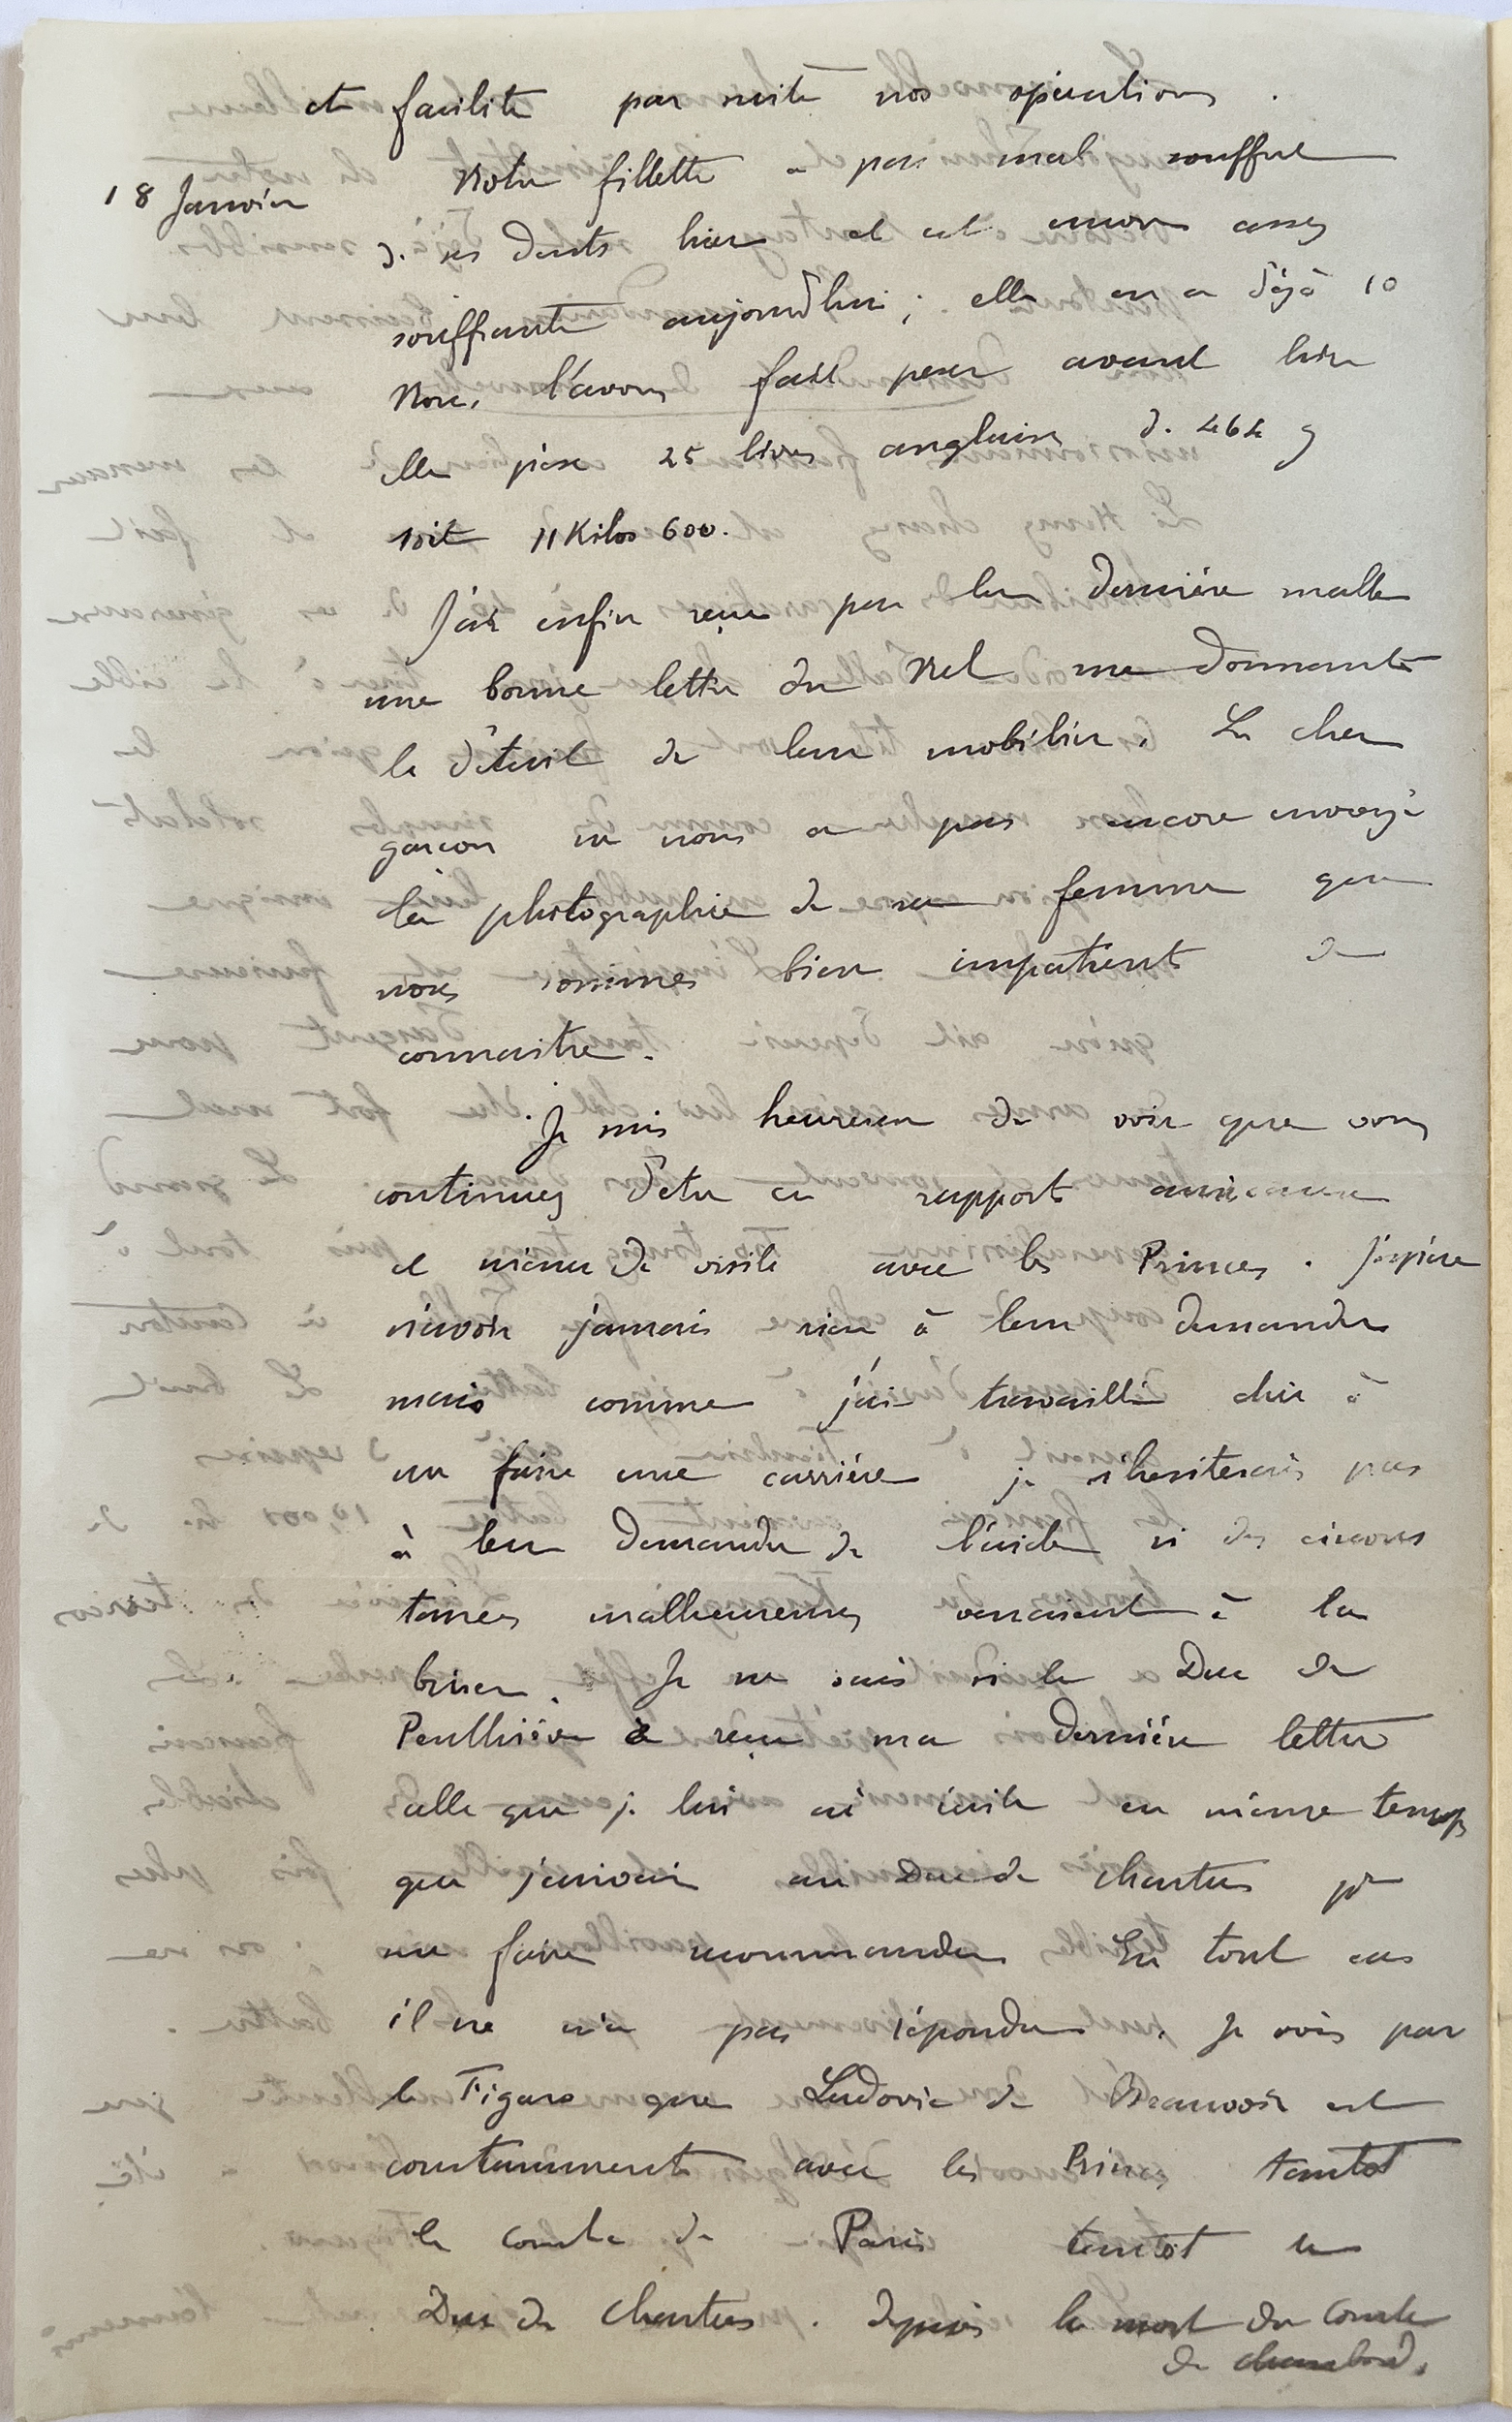 et facilite par suite nos opérations.
18 Janvier Notre fillette a pas mal souffert
de ses dents hier et est encore assez
souffrante aujourd'hui ; elle en a déjà 10
Nous l'avons fait peser avant hier
elle pèse 25 livres anglaises de 464 g
soit 11 Kilos 600.
J'ai enfin reçu par la dernière malle
une bonne lettre de me donnant
le détail de leur mobilier. Le cher
garçon ne nous a pas encore envoyé
la photographie de sa femme que
nous sommes bien impatients de
connaitre.
Je suis heureux de voir que vous
continuez d'être en rapports amicaux
et même de visite avec les Princes. J'espère
n'avoir jamais rien à leur demander
mais comme j'ai travaillé dur à
me faire une carrière je n'hesiterais pas
à leur demander de l'aide si des circons
tances malheureuses venaient à la
briser. Je ne sais si le Duc de
Penthièvre a reçu ma dernière lettre
celle que je lui ai écrite en même temps
que j'écrivais au Duc de Chartres pr
me faire recommander En tout cas
il ne m'a pas répondu. Je vois par
le Figaro que Ludovic de Beauvoir est
constamment avec les Princes tantot
le comte de Paris tantot le
Duc de Chartres. depuis la mort du Comte
de Chambord.